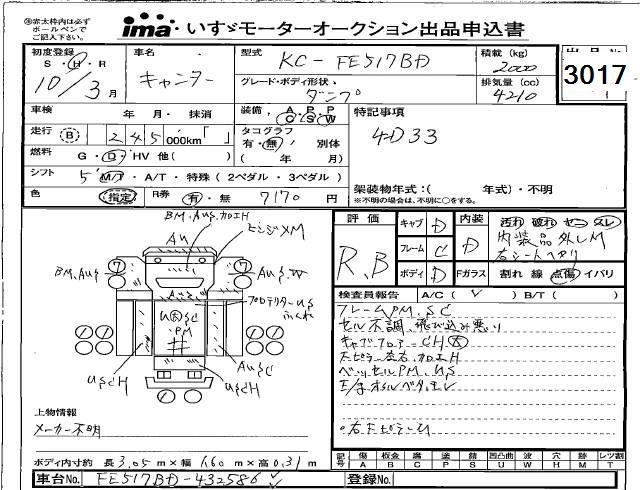 ㊟赤太枠内は必ず
ボールペンで
ご記入下さい。
ima いすゞモーターオークション出品申込書
初度登録
S・H・R
10/3月
車名
キャンター
型式
KC-FE517BD
積載(kg)
2000
出品No.
3017
グレード・ボディ形状
ダンプ
排気量(cc)
4210
車検 年 月・抹消
装備 A P P
C S W
特記事項
4D33
走行 B 245000km「 」
タコグラフ
有・無/別体
( 年 月)
燃料 G・D・HV 他( )
シフト 5 M/T・A/T・特殊(2ペダル・3ペダル)
色 指定 R券 有・無 7170円
架装物年式:( 年式)・不明
※不明の場合は、不明に○をする。
評価
R.B
キャブ D
フレーム C
ボディ D
内装 D
汚れ 破れ コゲ スレ
内装品外しM
右シートヘタリ
Fガラス 割れ 線 点傷 イバリ
検査員報告 A/C(レ) B/T( )
フレームPM.SC
セル不調.飛び込み悪い
キャブフロアーCH大
ベッセルPM.US
E/gオイルベタ.モレ
BM.AUS.加工H
AU
ヒンジXM
BM.AUS
AUS.W
プロテクターUS
AUSC
USCH
USCH
上物情報
メーカー不明
ボディ内寸約 長3.05m×幅1.60m×高0.31m
記号
傷 A
板金 B
腐 C
塗 P
錆 S
凹凸曲 U
波 W
穴 H
跡 M
レツ割 T
車台No. FE517BD-432586
登録No.